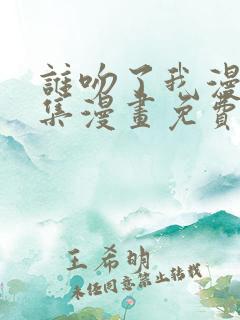 誰吻了我漫
集漫畫免費
王希明
未經同意禁止轉載